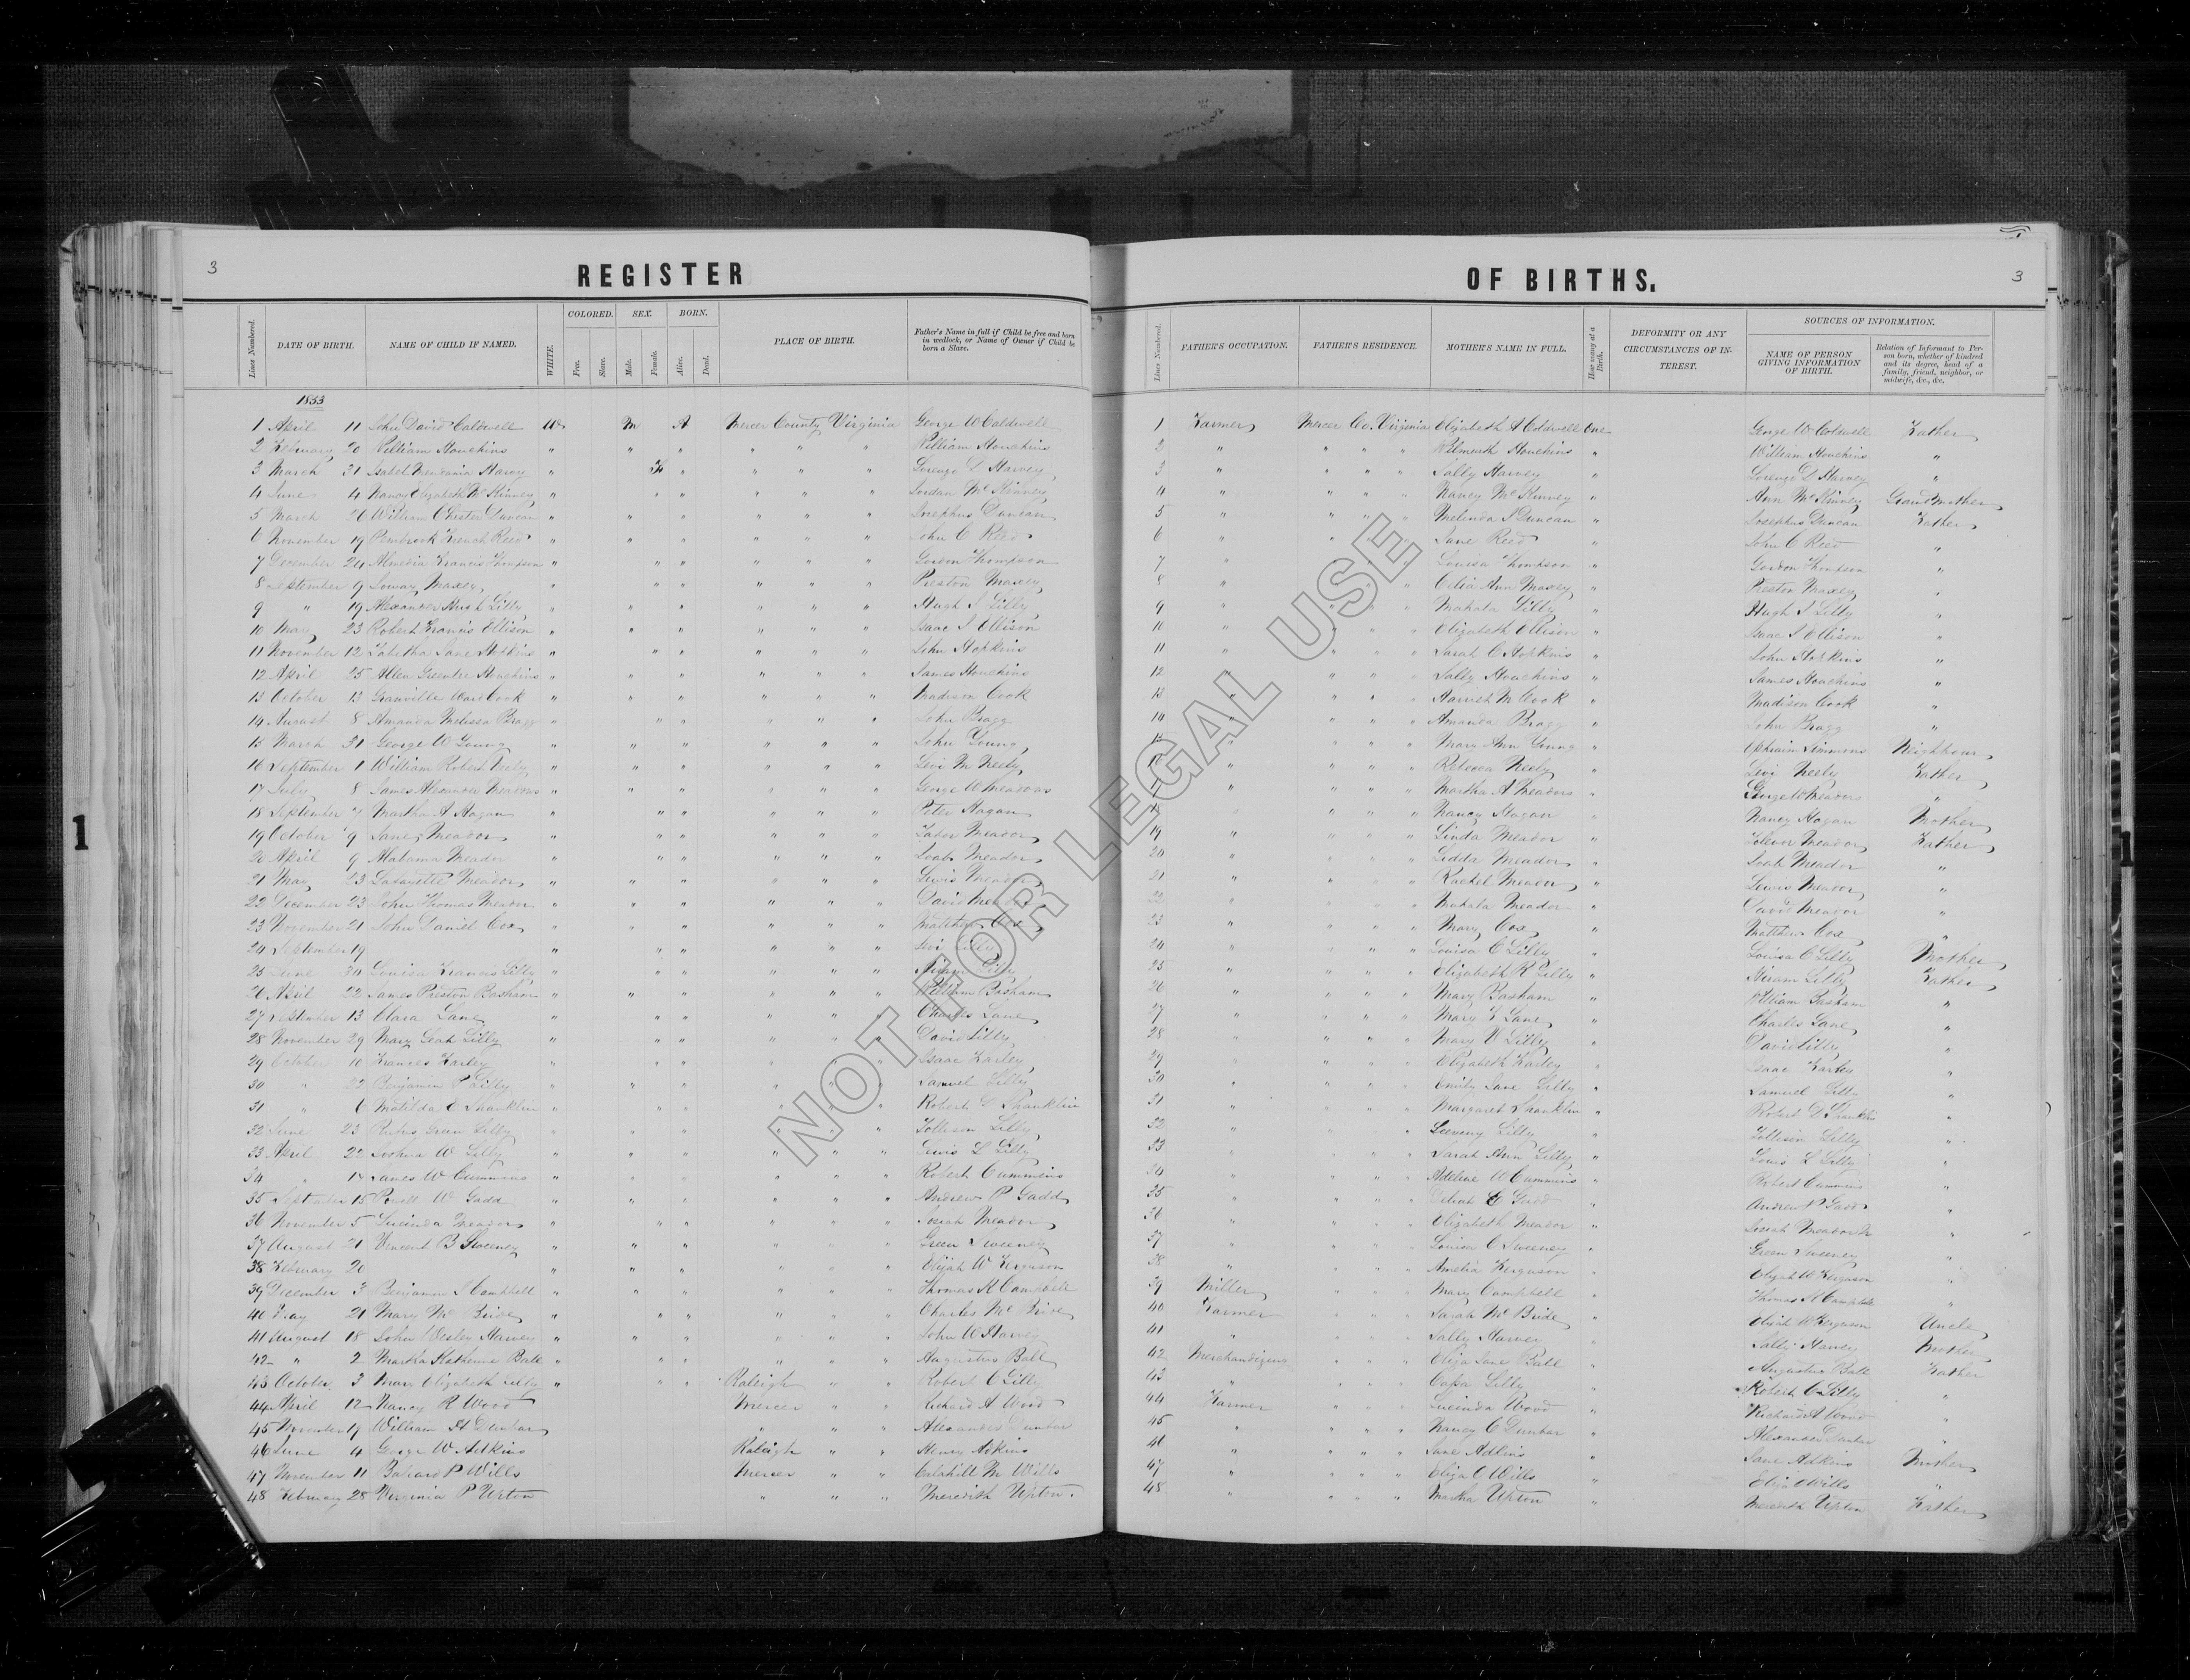 3 REGISTER OF BIRTHS. 3
Lines Numbered. DATE OF BIRTH. NAME OF CHILD IF NAMED. WHITE. COLORED. Free. Slave. SEX. Male. Female. BORN. Alive. Dead. PLACE OF BIRTH. Father's Name in full if Child be free and born in wedlock, or Name of Owner if Child be born a Slave. Lines Numbered. FATHER'S OCCUPATION. FATHER'S RESIDENCE. MOTHER'S NAME IN FULL. How many at a Birth. DEFORMITY OR ANY CIRCUMSTANCES OF INTEREST. SOURCES OF INFORMATION. NAME OF PERSON GIVING INFORMATION OF BIRTH. Relation of Informant to Person born, whether of kindred and its degree, head of a family, friend, neighbor, or midwife, &c., &c.
1853
1 April 11 John David Caldwell W M A Mercer County Virginia George W Caldwell 1 Farmer Mercer Co. Virginia Elizabeth A Coldwell One George W Coldwell Father
2 February 20 William Houchins " " " " " " William Houchins 2 " " " " Wilmurth Houchins " William Houchins "
3 March 31 Isabel Harvey " F " " " " Lorenzo D Harvey 3 " " " Sally Harvey " Lorenzo D Harvey "
4 June 4 Nancy Elizabeth McKinney " " " " " " Jordan McKinney 4 " " " " Nancy McKinney " Ann McKinney Grandmother
5 March 26 William Chister Duncan " " " " " " Josephus Duncan 5 " " " " Melinda J Duncan " Josephus Duncan Father
6 November 19 Pembrook French Reed " " " " " " John C Reed 6 " " Jane Reed " John C Reed "
7 December 24 Almedia Francis Thompson " " " " " " Gordon Thompson 7 " Louisa Thompson " Gordon Thompson "
8 September 9 Maxey " " " " " " Preston Maxey 8 " " Celia Ann Maxey " Preston Maxey "
9 " 19 Alexander Hugh Lilly " " " " " " Hugh J Lilly 9 " Mahala Lilly " Hugh J Lilly "
10 May 23 Robert Francis Ellison " " " " " " Isaac J Ellison 10 " " " " Elizabeth Ellison " Isaac J Ellison "
11 November 12 Tabetha Jane Hopkins " " " " " " John Hopkins 11 " " " " Sarah C Hopkins " John Hopkins "
12 April 25 Allen Houchins " " " " " " James Houchins 12 " " " Sally Houchins " James Houchins "
13 October 13 Granville Ward Cook " " " " " " Madison Cook 13 " " " " M Cook " Madison Cook "
14 August 8 Amanda Melissa Bragg " " " " " " John Bragg 14 " " " " Amanda Bragg " John Bragg "
15 March 31 George W Young " " " " " " John Young 15 " " " " Mary Ann Young " Ephraim Simmons Neighbour
16 September 1 William Robert Neely " " " " " " Levi M Neely 16 " " " " Rebecca Neely " Levi Neely Father
17 July 8 James Alexander Meadows " " " " " " George W Meadows 17 " " " " Martha A Meadors " George W Meadors "
18 September 7 Martha A Hagan " " " " " " Peter Hagan 18 " " " " Nancy Hagan " Nancy Hagan Mother
19 October 9 Jane Meador " " " " " " Meador 19 " " " " Linda Meador " Meador Father
20 April 9 Alabama Meador " " " " " " Joab Meador 20 " " " " Lidda Meador " Joab Meador "
21 May 23 Lafayette Meador " " " " " " Lewis Meador 21 " " " " Rachel Meador " Lewis Meador "
22 December 23 John Thomas Meador " " " " " " David Meador 22 " " " " Mahala Meador " David Meador "
23 November 21 John Daniel Cox " " " " " " Matthew Cox 23 " " " " Mary Cox " Matthew Cox "
24 September 19 " " " " " " Levi Lilly 24 " " " " Louisa C Lilly " Louisa C Lilly Mother
25 June 30 Louisa Francis Lilly " " " " " " Hiram Lilly 25 " " " " Elizabeth R Lilly " Hiram Lilly Father
26 April 22 James Preston Basham " " " " " " William Basham 26 " " " " Mary Basham " William Basham "
27 September 13 Clara Lane " " " " " " Charles Lane 27 " " " " Mary E Lane " Charles Lane "
28 November 29 Mary Leah Lilly " " " " " David Lilly 28 " " " " Mary V Lilly " David Lilly "
29 October 10 Frances Farley " " " " Isaac Farley 29 " " " " Elizabeth Farley " Isaac Farley "
30 " 22 Benjamin P Lilly " " " " " " Samuel Lilly 30 " " " " Emily Jane Lilly " Samuel Lilly "
31 " 6 Matilda E Shanklin " " " " " " Robert D Shanklin 31 " " " " Margaret Shanklin " Robert D Shanklin "
32 June 23 Rufus Green Lilly " " " " " Tollison Lilly 32 " " " " Lilly " Tollison Lilly "
33 April 22 Joshua W Lilly " " " " " " Lewis L Lilly 33 " " " " Sarah Ann Lilly " Lewis L Lilly "
34 " James W Cummins " " " " " " Robert Cummins 34 " " " " Adeline W Cummins " Robert Cummins "
35 September 15 W Gadd " " " " " " Andrew P Gadd 35 " " " " Gadd " Andrew P Gadd "
36 November 5 Lucinda Meador " " " " " " Josiah Meador 36 " " " " Elizabeth Meador " Josiah Meador "
37 August 21 Vincent B Sweeney " " " " " " Green Sweeney 37 " " " " Louisa C Sweeney " Green Sweeney "
38 February 20 " " " " " " Elijah W Ferguson 38 " " " " Amelia Ferguson " Elijah W Ferguson "
39 December 3 Benjamin S Campbell " " " " " " Thomas H Campbell 39 Miller " " " Mary Campbell " Thomas H Campbell "
40 May 21 Mary McBride " " " " " " Charles McBride 40 Farmer " " " Sarah McBride " Elijah W Ferguson Uncle
41 August 18 John Wesley Harvey " " " " " " John W Harvey 41 " " " " Sally Harvey " Sally Harvey Mother
42 " 2 Martha Katherine Ball " " " " " " Augustus Ball 42 Merchandizing " " " Eliza Jane Ball " Augustus Ball Father
43 October 3 Mary Elizabeth Lilly " " " Raleigh " " Robert C Lilly 43 " " " " Lilly " Robert C Lilly "
44 April 12 Nancy R Wood Mercer " " Richard A Wood 44 Farmer " " " Lucinda Wood " Richard A Wood "
45 November 19 William H Dunbar " " " Alexander Dunbar 45 " " " " Nancy C Dunbar " Alexander Dunbar "
46 June 4 George W Adkins Raleigh " " Henry Adkins 46 " " " " Jane Adkins " Jane Adkins Mother
47 November 11 P Wills Mercer " " M Wills 47 " " " " Eliza C Wills " Eliza C Wills "
48 February 28 Virginia P Upton " " " Meredith Upton. 48 " " " " Martha Upton " Meredith Upton Father
1 1
NOT FOR LEGAL USE